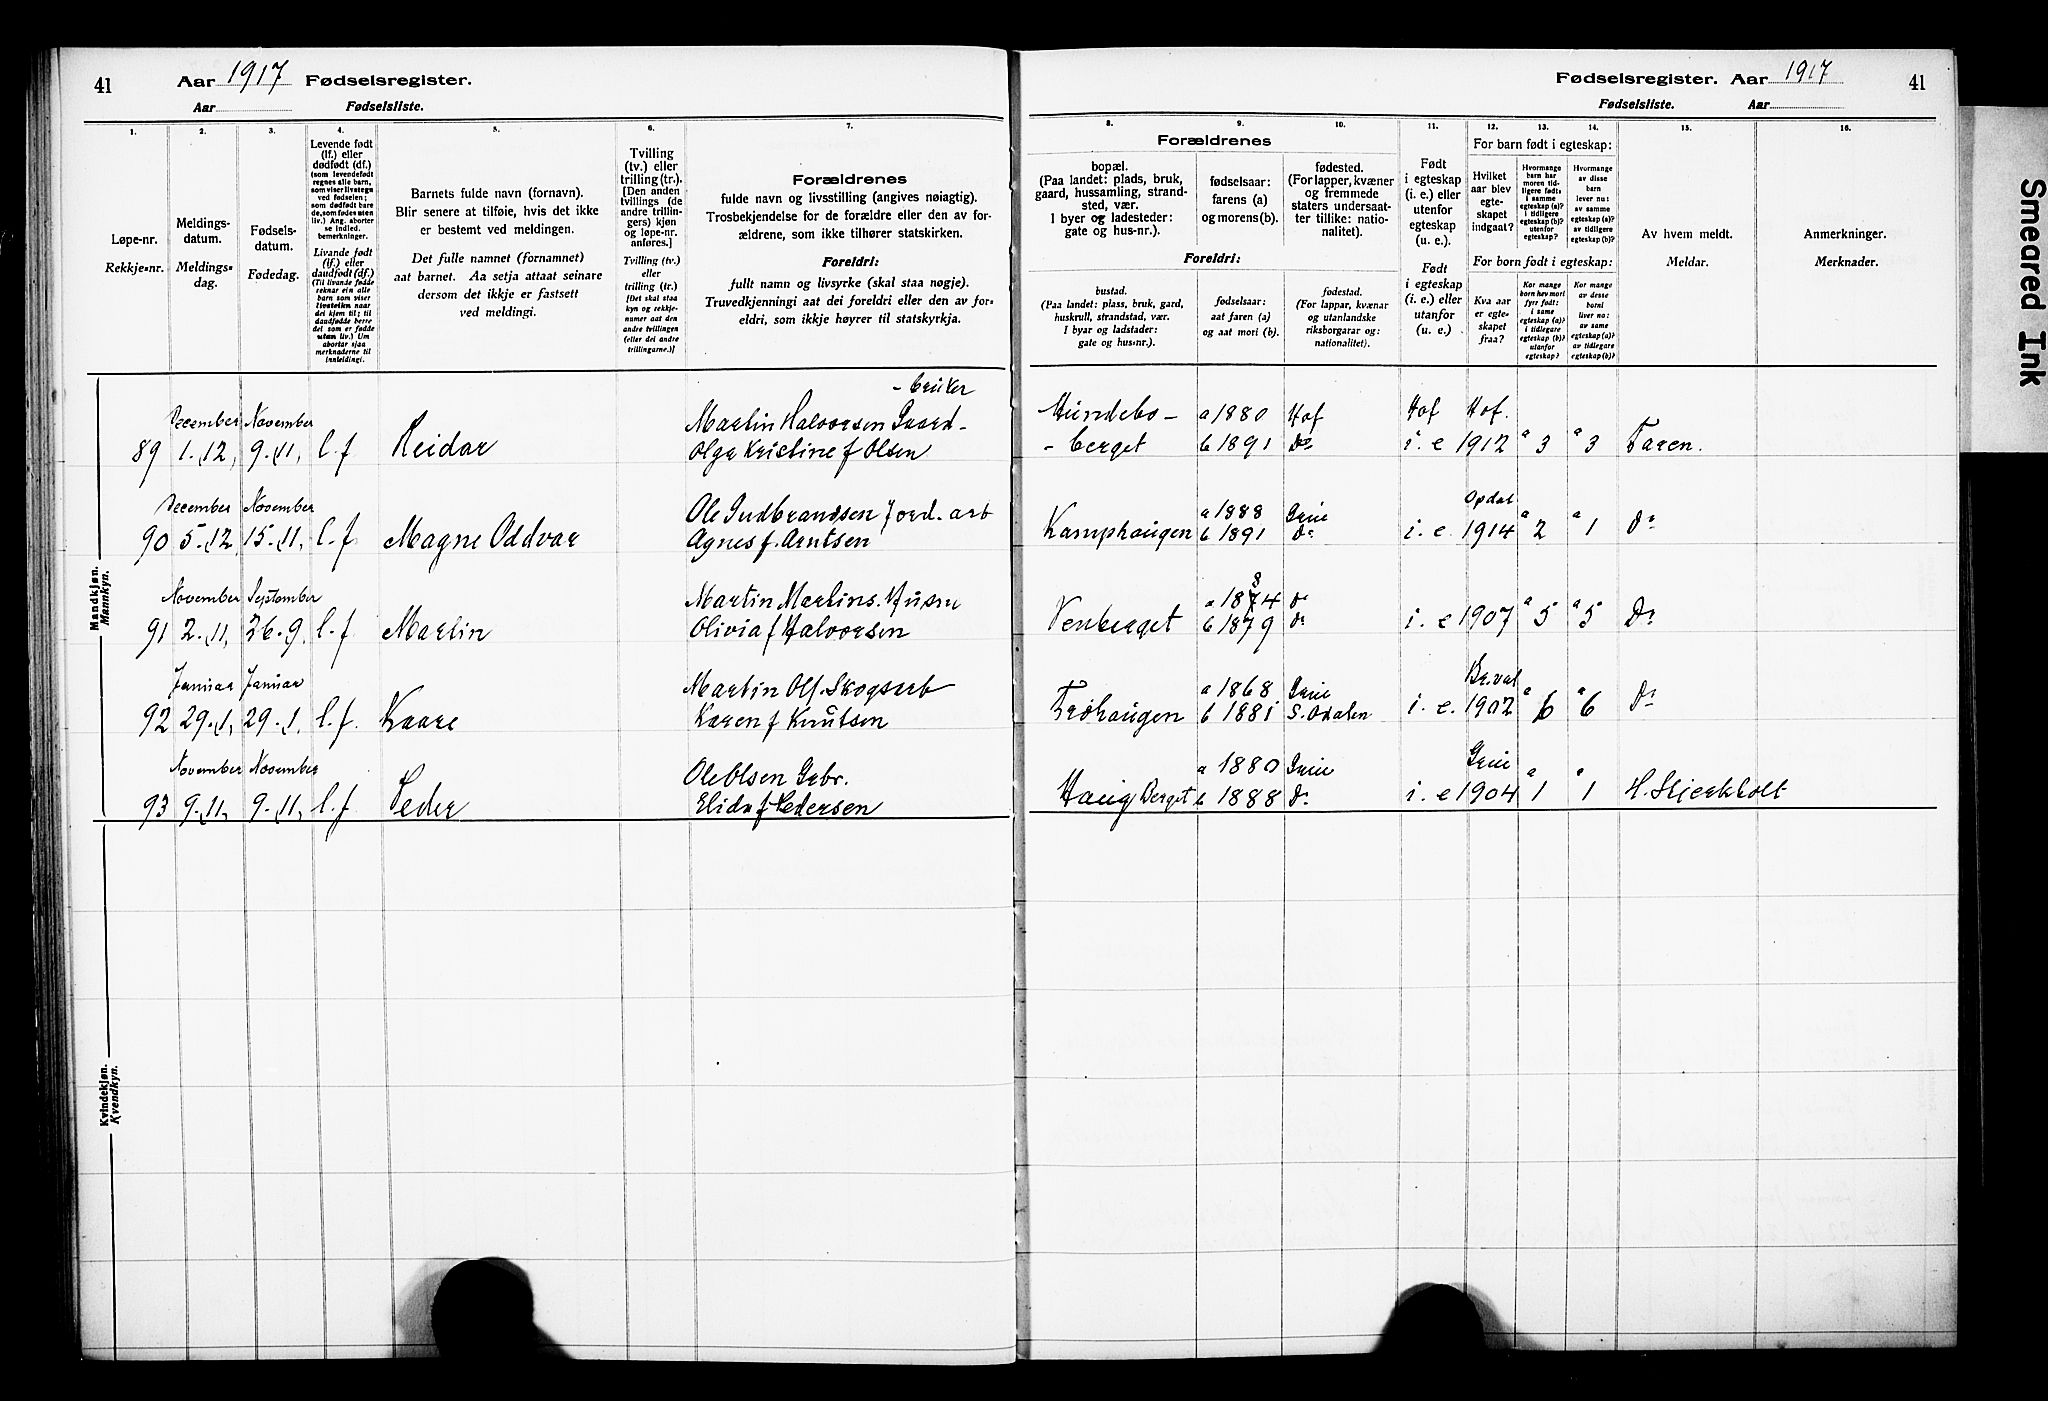 41 Aar 1917 Fødselsregister.
Aar Fødselsliste.
Fødselsregister. Aar 1917 41
Fødselsliste. Aar
Smeared Ink
1.
Løpe-nr.
Rekkje-nr.
2.
Meldings-
datum.
Meldings-
dag.
3.
Fødsels-
datum.
Fødedag.
4.
Levende født
(lf.) eller
dødfødt (df.)
(som levendefødt
regnes alle barn,
som viser livstegn
ved fødselen;
som dødfødt bare
de, som fødes uten
liv.) Ang. aborter
se indled.
bemerkninger.
Livande født
(lf.) eller
daudfødt (df.)
(Til livande fødde
reknar ein alle
born som viser
livsteikn naar
dei kjem til; til
daudfødde berre
dei som er fødde
utan liv.) Um
abortar sjaa
merknaderne til
innleidingi.
5.
Barnets fulde navn (fornavn).
Blir senere at tilføie, hvis det ikke
er bestemt ved meldingen.
Det fulle namnet (fornamnet)
aat barnet. Aa setja attaat seinare
dersom det ikkje er fastsett
ved meldingi.
6.
Tvilling
(tv.) eller
trilling (tr.).
[Den anden
tvillings (de
andre trillin-
gers) kjøn
og løpe-nr.
anføres.]
Tvilling (tv.)
eller
trilling (tr.)
[Det skal staa
kyn og rekkje-
numer aat den
andre tvillingen
(eller dei andre
trillingarne.)]
7.
Forældrenes
fulde navn og livsstilling (angives nøiagtig).
Trosbekjendelse for de forældre eller den av for-
ældrene, som ikke tilhører statskirken.
Foreldri:
fullt namn og livsyrke (skal staa nøgje).
Truvedkjenningi aat dei foreldri eller den av for-
eldri, som ikkje høyrer til statskyrkja.
8.
Forældrenes
bopæl.
(Paa landet: plads, bruk,
gaard, hussamling, strand-
sted, vær.
I byer og ladesteder:
gate og hus-nr.).
Foreldri:
bustad.
(Paa landet: plass, bruk, gard,
huskrull, strandstad, vær.
I byar og ladstader:
gate og hus-nr.).
9.
fødselsaar:
farens (a)
og morens (b).
fødselsaar:
aat faren (a)
og aat mori (b).
10.
fødested.
(For lapper, kvæner
og fremmede
staters undersaat-
ter tillike: natio-
nalitet).
fødestad.
(For lappar, kvænar
og utanlandske
riksborgarar og:
nationalitet).
11.
Født
i egteskap
(i. e.) eller
utenfor
egteskap
(u. e.).
Født
i egteskap
(i. e.) eller
utanfor
(u. e.).
12.
For barn født i egteskap:
Hvilket
aar blev
egte-
skapet
indgaat?
For born født i egteskap:
Kva aar
er egte-
skapet
fraa?
13.
Hvormange
barn har
moren tid-
ligere født:
i samme
egteskap (a)?
i tidligere
egteskap (b)?
utenfor
egteskap?
Kor mange
born hev mori
fyrr født:
i same
egteskap (a)?
i tidlegare
egteskap (b)?
utanfor
egteskap?
14.
Hvormange
av disse
barn
lever nu:
av samme
egteskap (a)?
av tidligere
egteskap (b)?
Kor mange
av desse
borni
liver no:
av same
egteskap (a)?
av tidlegare
egteskap (b)?
15.
Av hvem meldt.
Meldar.
16.
Anmerkninger.
Merknader.
Mandkjøn.
Mannkyn.
December November - bruker
Martin Halvorsen Gaard- Mundebo- a 1880 Hof Hof Hof.
89 1.12, 9.11, l.f. Reidar Olga Kristine f Olsen -berget b 1891 Do i. e 1912 a 3 a 3 Faren.
December November Ole Gudbrandsen Jord. arb a 1888 Grue Opdal
90 5.12, 15.11, l.f. Magne Oddvar Agnes f. Arntsen Kamphaugen b 1891 Do i. e. 1914 a 2 a 1 Do
November September Martin Martins. Husm a 1874 8 Do
91 2.11, 26.9, l.f. Martin Olivia f Halvorsen Venberget b 1879 Do i. e 1907 a 5 a 5 Do
Januar Januar Martin Olf. Skogsarb a 1868 Grue Br.val
92 29.1, 29.1, l.f. Kaare Karen f Knutsen Frøhaugen b 1881 S. Odalen i. e. 1902 a 6 a 6 Do
November November Ole Olsen Gbr. a 1880 Grue Grue
93 9.11, 9.11, l.f. Peder Elida f Pedersen Haug Berget b 1888 Do i. e 1904 a 1 a 1 H. Stjerkholt
Kvindekjøn.
Kvendkyn.